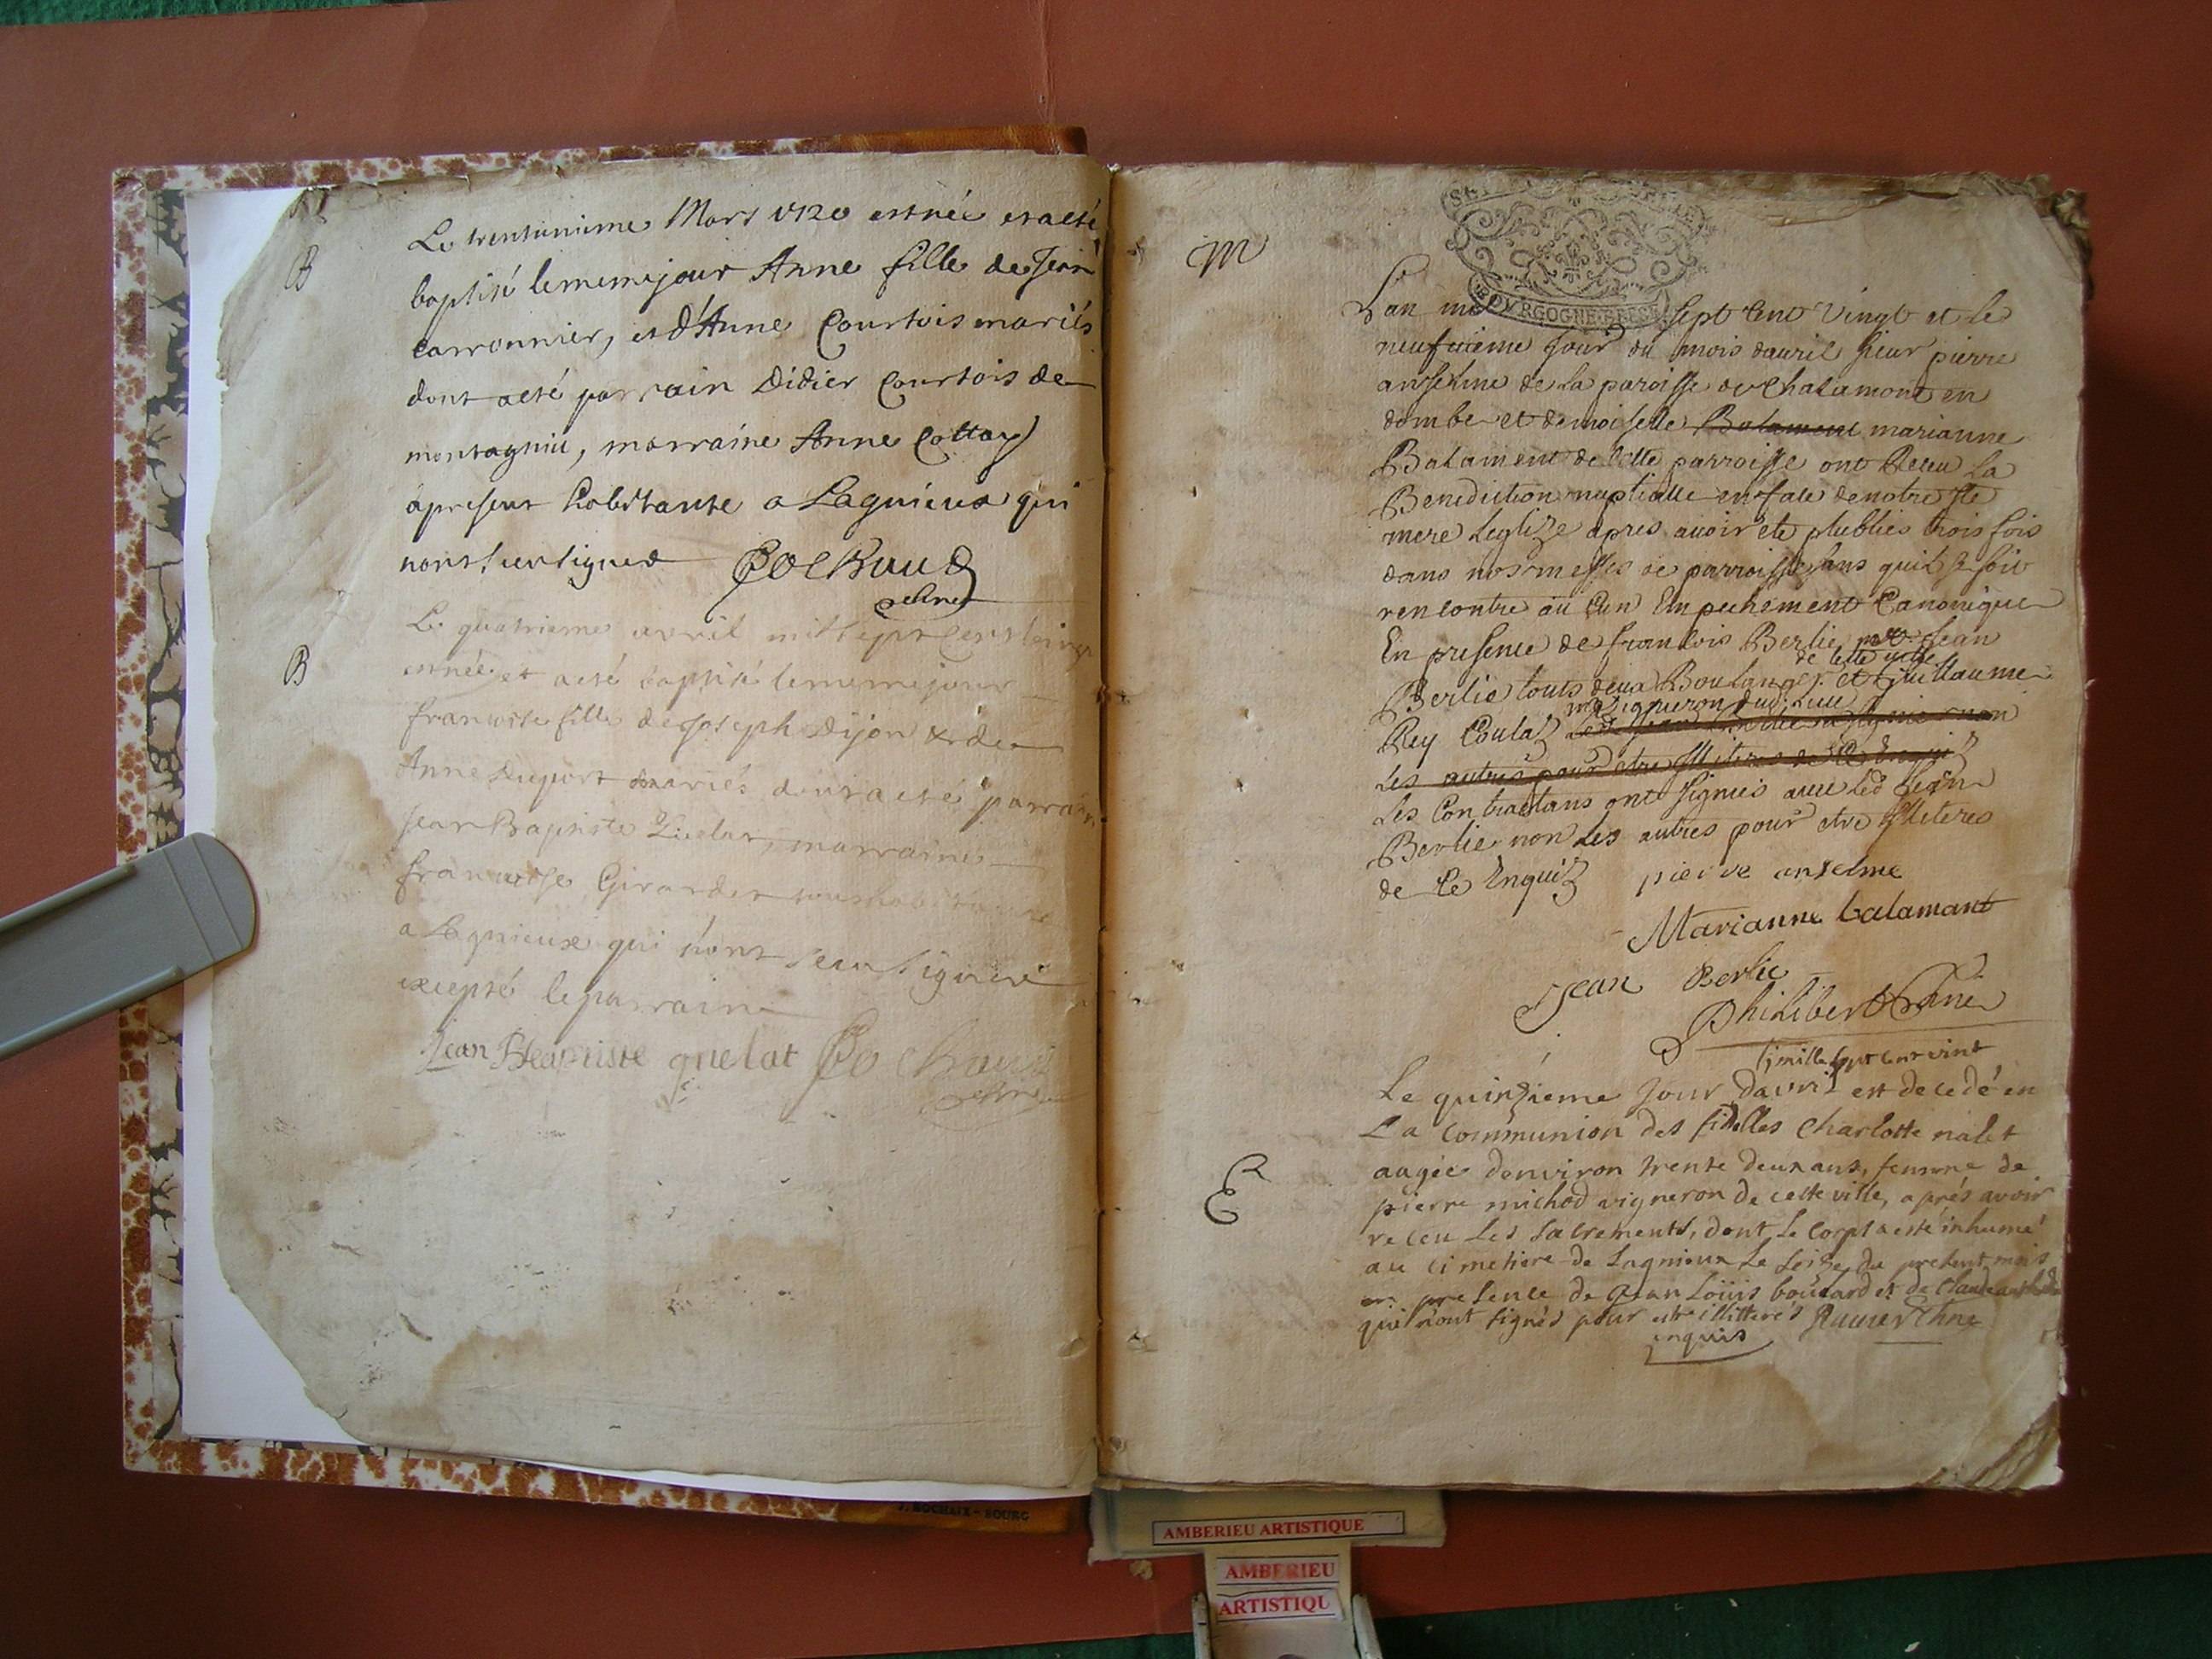 B
Le trentunieme Mars 1720 est née et a esté
baptisé le meme jour Anne fille de Jean
carronnier, et d'Anne Courtois mariés
dont a eté parrain Didier Courtois de
montagniu, marraine Anne Cottay
a present habitante a Lagnieux qui
nont sceu signer Cochaud
B
Le quatrieme avril mil sept cens vingt
est née et a esté baptisé le meme jour
francoise fille de Joseph Dijon & de
Anne Duport mariés dont a esté parrain
Jean Baptiste Quelat, marraine
francoise Girardet tous habitants
a Lagnieux qui n'ont sceu signer
excepté le parrain
Jean Baptiste quelat Cochaud
M
BOVRGOGNE BRESSE
Lan mil sept Cent Vingt et le
neufuieme Jour du mois dauril sieur pierre
anselme de la paroisse de Chalamont en
dombe et demoiselle Balament marianne
Balament de Cette parroisse ont Receu la
Benediction nuptialle en face de notre Ste
mere Leglize apres auoir ete publiés trois fois
dans nos messes de parroisse sans quil se soit
rencontre au Cun Empechement Canonique
En presence de francois Berlie Jean
de Cette ville
Berlie touts deux Boulanger et Guillaume
vigneron dud. lieu
Rey Coulaz
Les autres pour etre Illiteres de Ce Enquis
Les Contractans ont signés auec led Jean
Berlie non Les autres pour etre Illiteres
de Ce Enquiz pierre anselme
Marianne balamant
Jean Berlie
Philibert
mille sept cent vint
Le quinzieme Jour Davril est decedé en
La Communion des fidelles Charlotte nalet
augée denviron trente deux ans, femme de
pierre michod vigneron de cette ville, aprés avoir
E
receu Les Sacrements, dont Le Corps a esté inhumé
au Cimetiere de Lagnieux Le seize du present mois
en presence de Jean Loüis boulard et de Claude
qui n'ont signés pour estre illitteres
enquis
J. ROCHAIX - BOURG
AMBERIEU ARTISTIQUE
AMBERIEU
ARTISTIQU